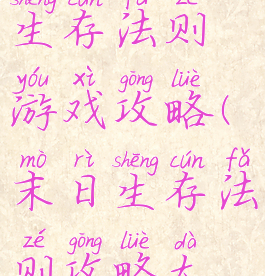 shēng cún fǎ zé
生存法则
yóu xì gōng lüè
游戏攻略(
mò rì shēng cún fǎ
末日生存法
zé gōng lüè dà
则攻略大